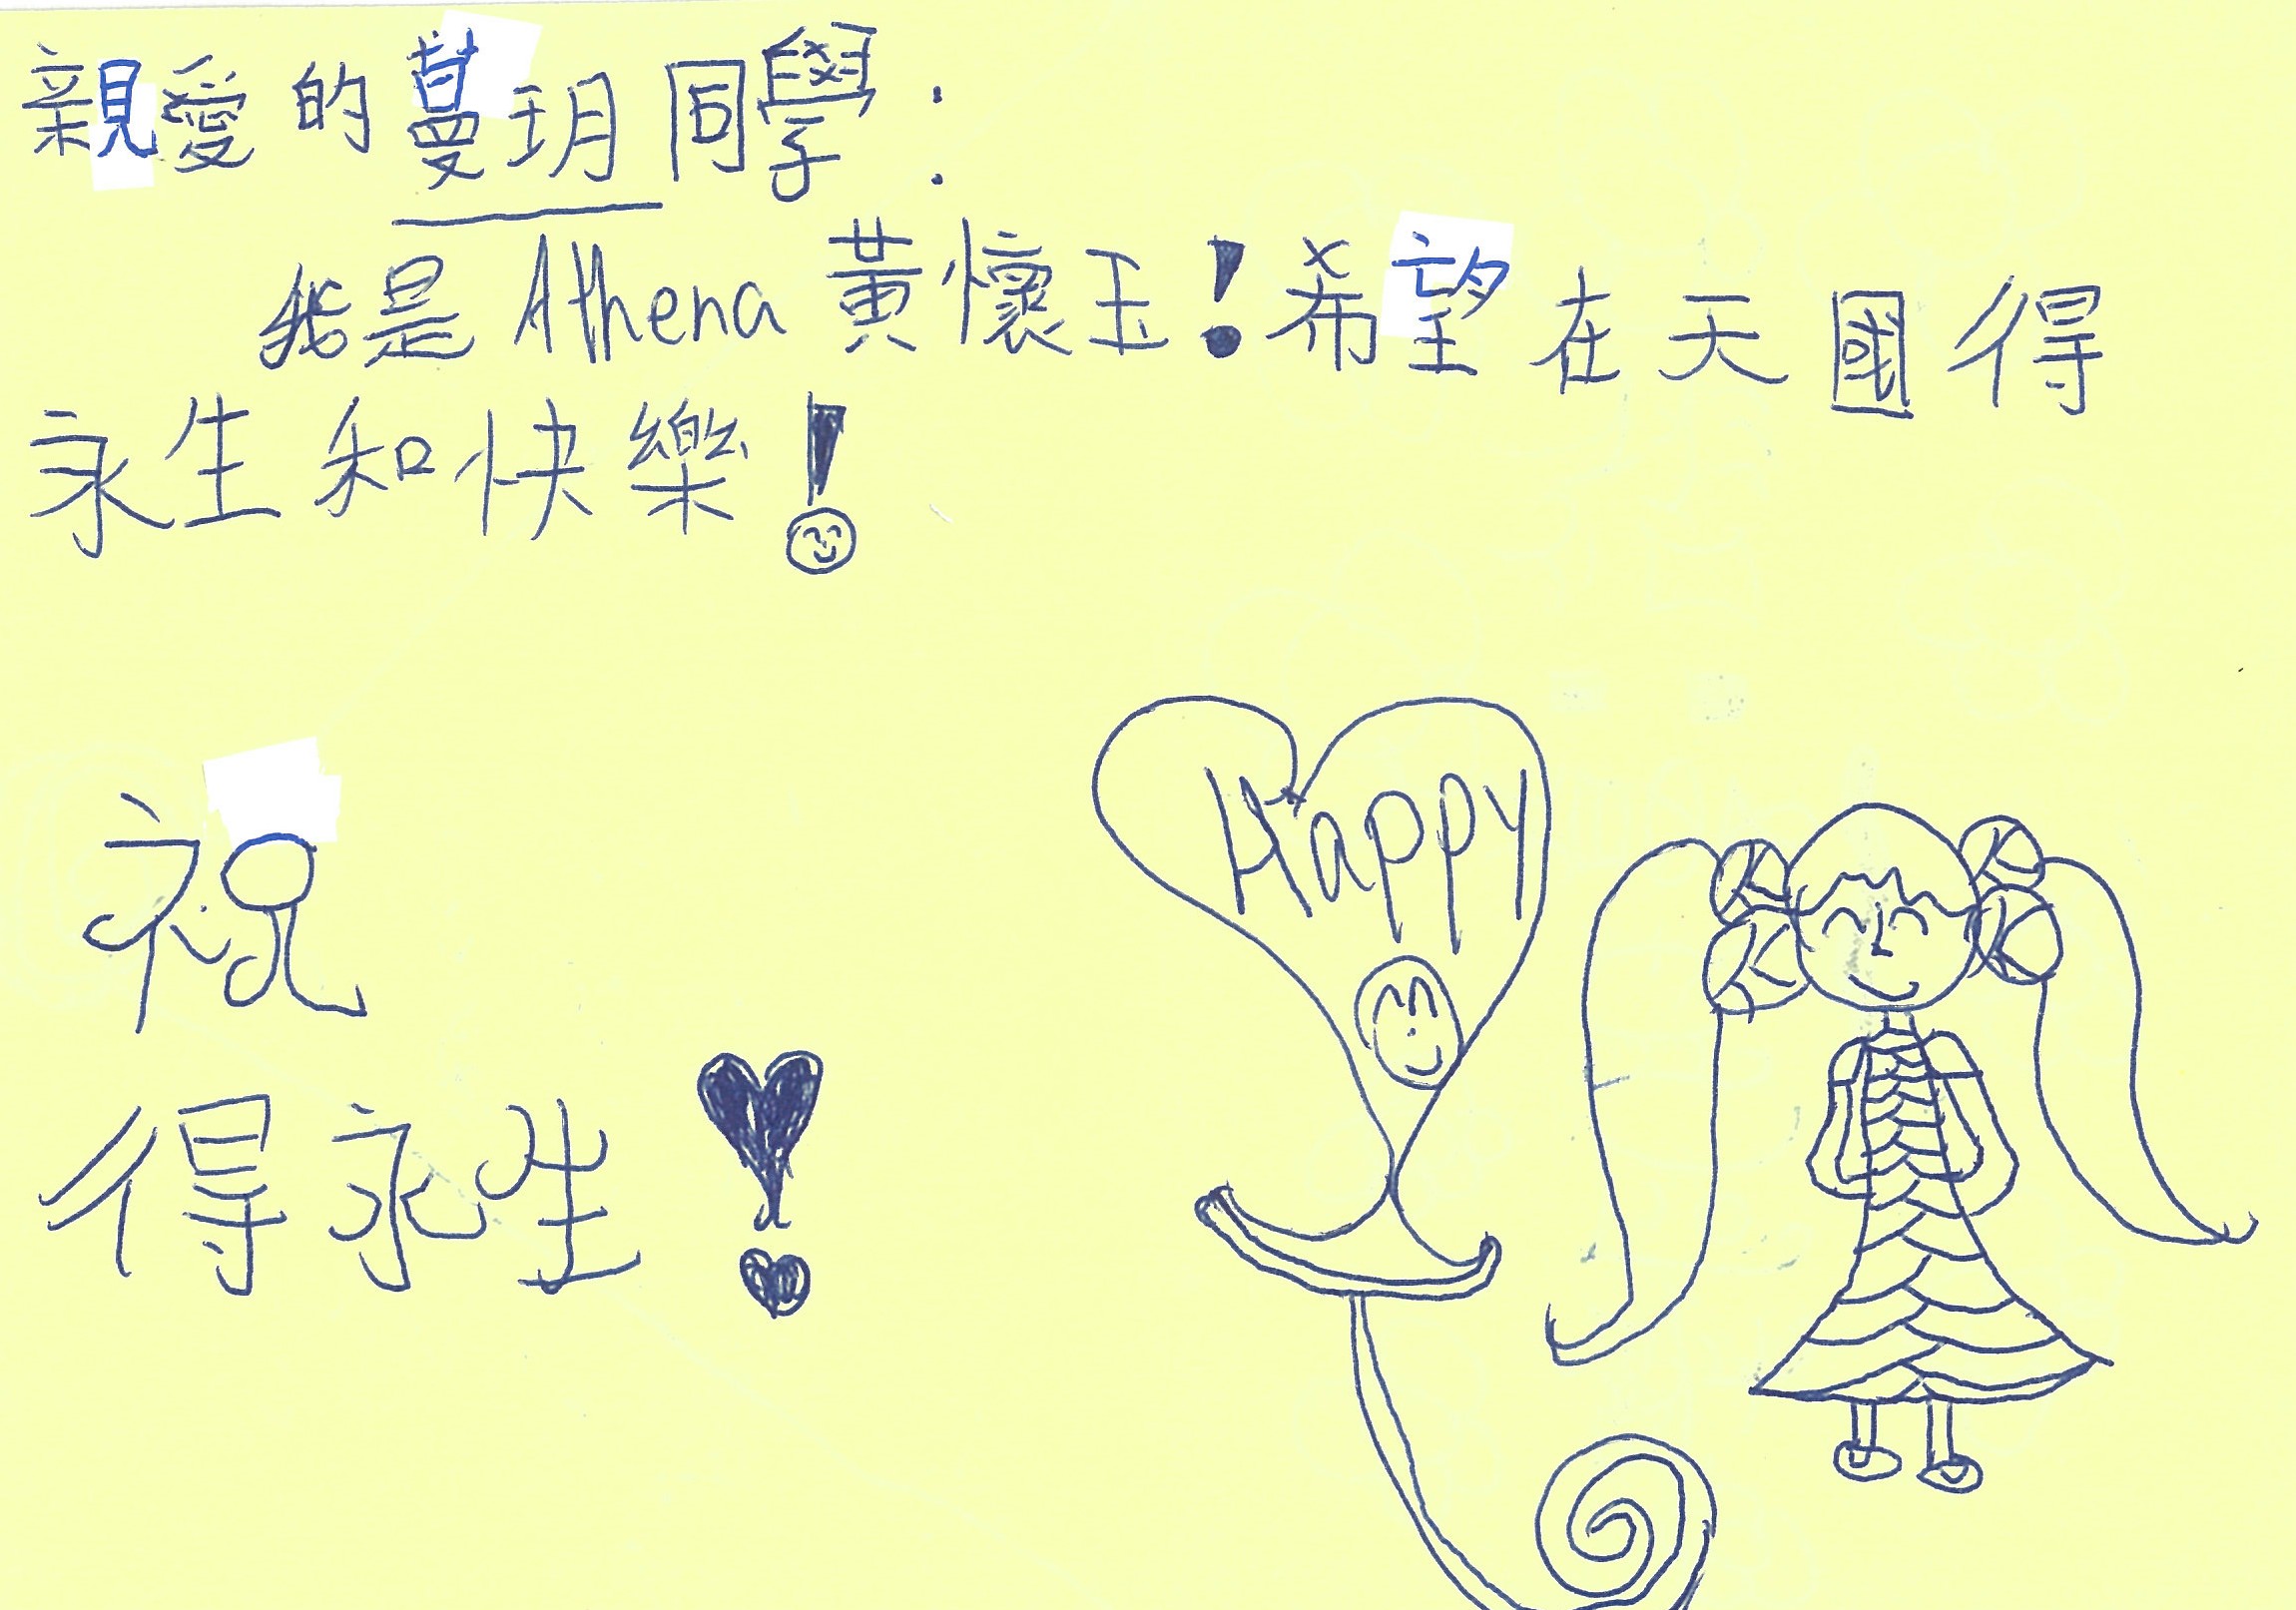 親愛的蔓玥同學：
我是Athena黃懷玉！希望在天國得
永生和快樂！
祝
得永生！
Happy